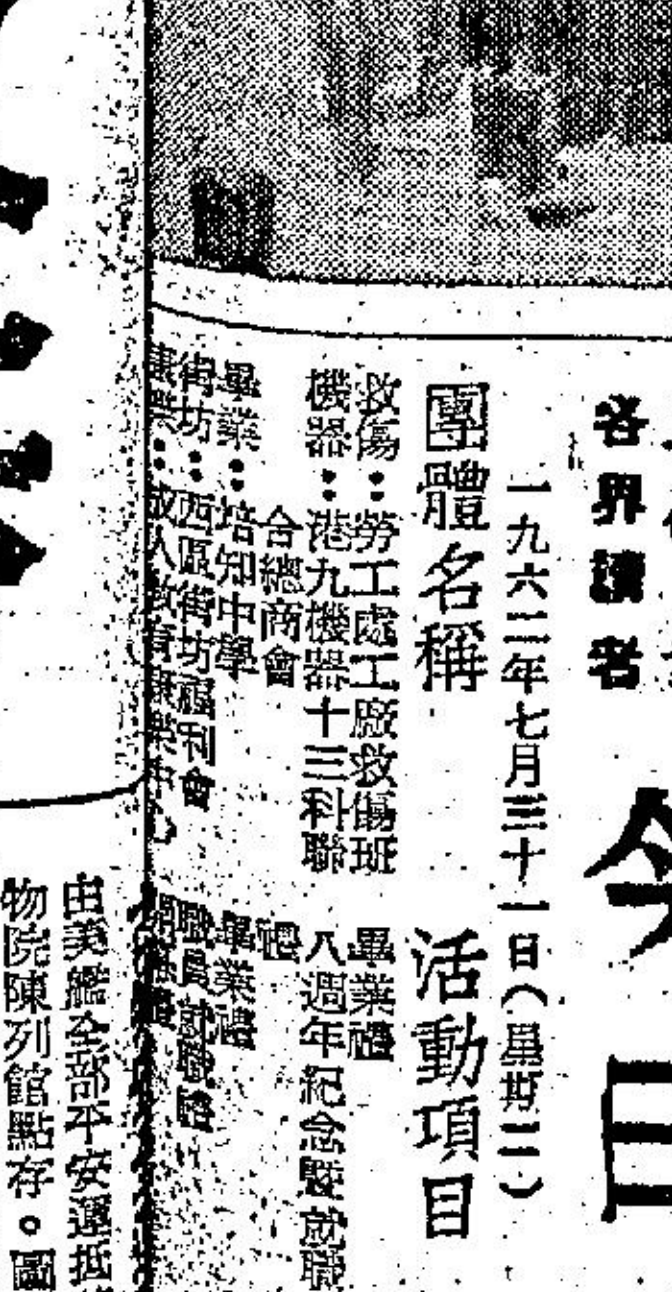 各界讀者
今日
一九六二年七月三十一日（星期二）
團體名稱　活動項目
救傷：勞工處工廠救傷班　畢業禮
機器：港九機器十三科聯　八週年紀念暨就職
合總商會　禮
畢業：培知中學　畢業禮
街坊：西區街坊福利會　職員就職
康樂：成人教育康樂中心
由美艦全部平安運抵
物院陳列館點存。圖